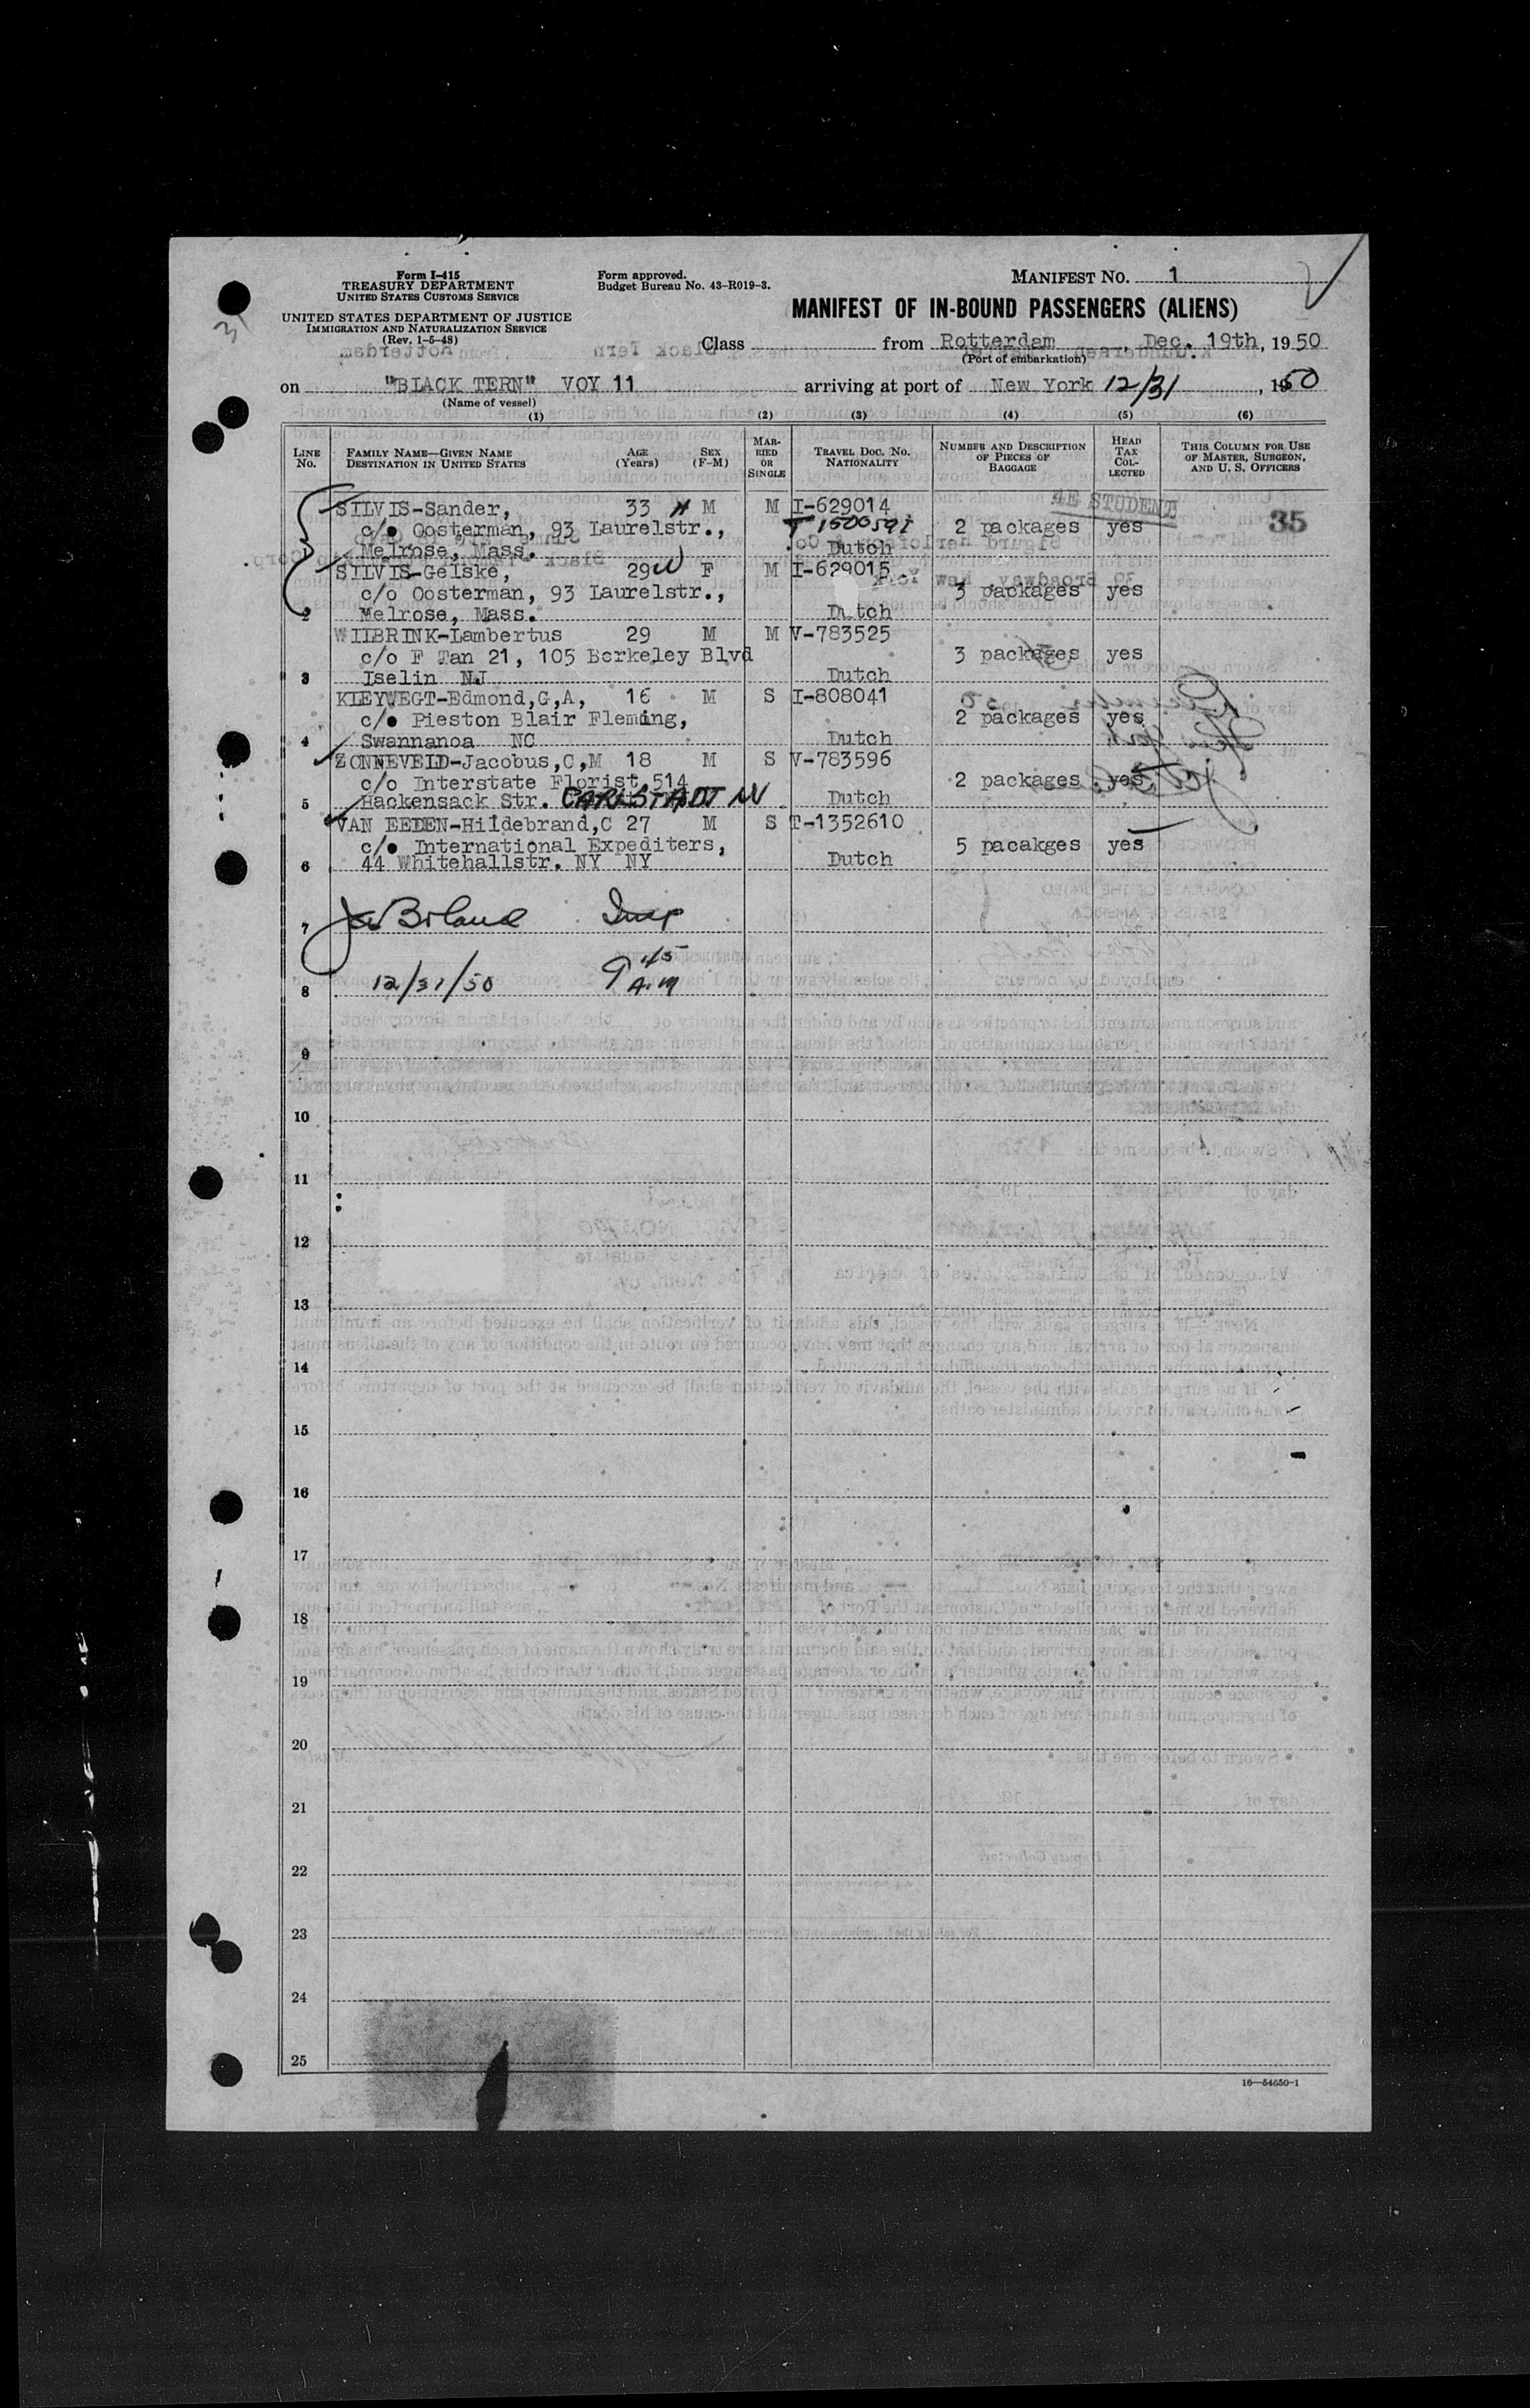 Form I-415
TREASURY DEPARTMENT
UNITED STATES CUSTOMS SERVICE
UNITED STATES DEPARTMENT OF JUSTICE
IMMIGRATION AND NATURALIZATION SERVICE
(Rev. 1-5-48)
Form approved.
Budget Bureau No. 43-R019-3.
MANIFEST NO. 1
MANIFEST OF IN-BOUND PASSENGERS (ALIENS)
Class from Rotterdam, Dec. 19th, 1950
(Port of embarkation)
on "BLACK TERN" VOY 11 arriving at port of New York 12/31, 1950
(Name of vessel)
(1) (2) (3) (4) (5) (6)
LINE No. FAMILY NAME—GIVEN NAME DESTINATION IN UNITED STATES AGE (Years) SEX (F-M) MARRIED OR SINGLE TRAVEL DOC. NO. NATIONALITY NUMBER AND DESCRIPTION OF PIECES OF BAGGAGE HEAD TAX COLLECTED THIS COLUMN FOR USE OF MASTER, SURGEON, AND U. S. OFFICERS
SILVIS-Sander, 33 H M M I-629014 4E STUDENT
c/o Oosterman, 93 Laurelstr., 2 packages yes 35
1 Melrose, Mass. Dutch
SILVIS-Gelske, 29 W F M I-629015
c/o Oosterman, 93 Laurelstr., 3 packages yes
2 Melrose, Mass. Dutch
WILBRINK-Lambertus 29 M M V-783525
c/o F Tan 21, 105 Berkeley Blvd 3 packages yes
3 Iselin NJ Dutch
KLEYWEGT-Edmond,G,A, 16 M S I-808041
c/o Pieston Blair Fleming, 2 packages yes
4 Swannanoa NC Dutch
ZONNEVELD-Jacobus,C,M 18 M S V-783596
c/o Interstate Florist,514 2 packages yes
5 Hackensack Str. CARLSTADT Dutch
VAN EEDEN-Hildebrand,C 27 M S T-1352610
c/o International Expediters, 5 pacakges yes
6 44 Whitehallstr. NY NY Dutch
7
8 12/31/50 9 45 A.M
9
10
11
12
13
14
15
16
17
18
19
20
21
22
23
24
25
16—54650-1